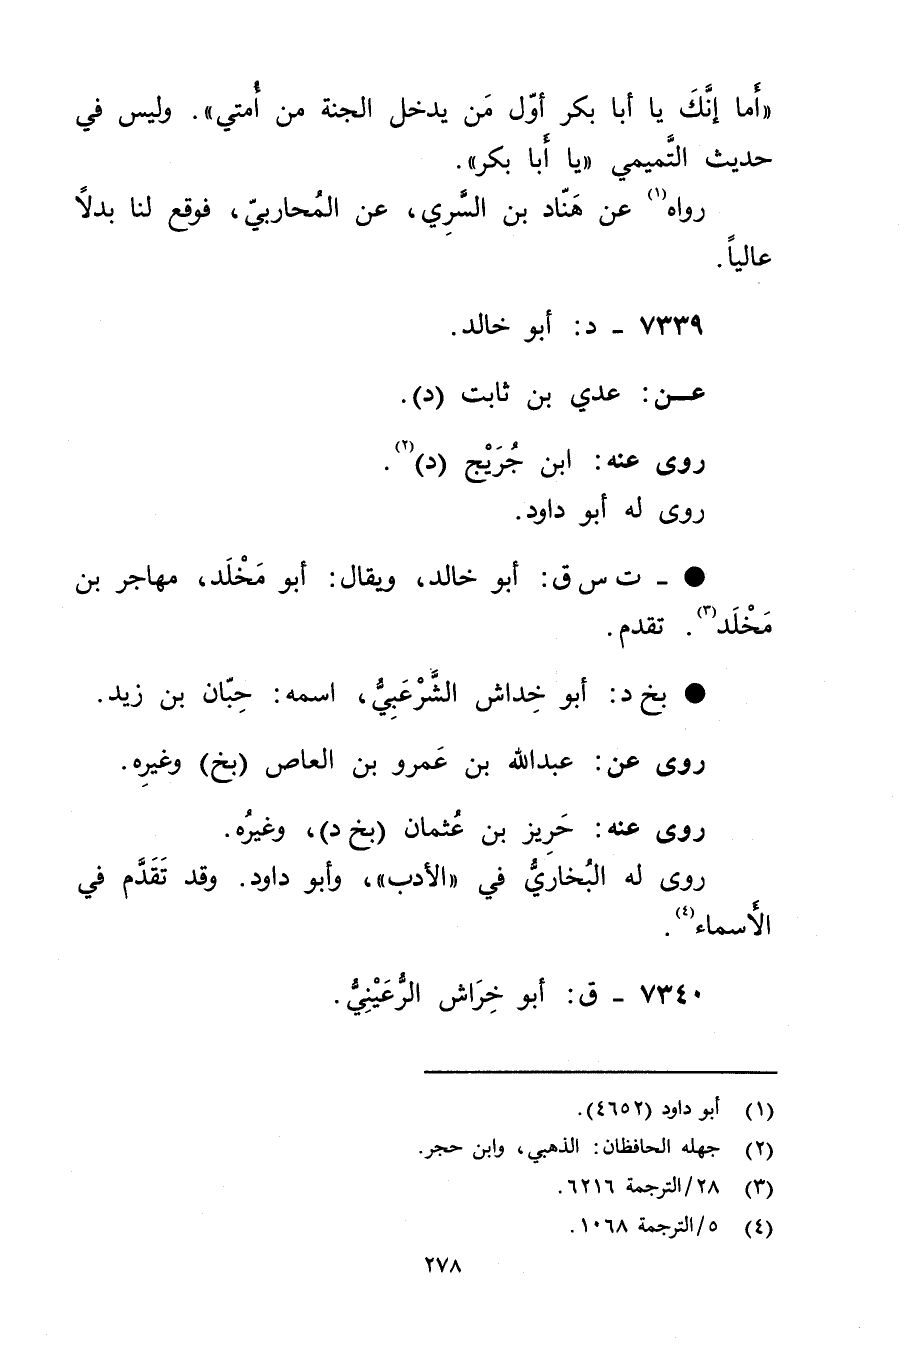 «أَما إنَّكَ يا أبا بكر أوّل مَن يدخل الجنة من أُمتي». وليس في
حديث التَّميمي «يا أَبا بكر».
رواه(١) عن هَنّاد بن السَّرِي، عن المُحاربيّ، فوقع لنا بدلاً
عالياً.
٧٣٣٩ ـ د: أبو خالد.
عـــن: عدي بن ثابت (د).
روى عنه: ابن جُرَيْج (د)(٢).
روى له أبو داود.
● ـ ت س ق: أبو خالد، ويقال: أبو مَخْلَد، مهاجر بن
مَخْلَد(٣). تقدم.
● بخ د: أبو خِداش الشَّرْعَبِيُّ، اسمه: حِبّان بن زيد.
روى عن: عبدالله بن عَمرو بن العاص (بخ) وغيرِه.
روى عنه: حَرِيز بن عُثمان (بخ د)، وغيرُه.
روى له البُخاريُّ في «الأدب»، وأبو داود. وقد تَقَدَّم في
الأَسماء(٤).
٧٣٤٠ ـ ق: أبو خِرَاش الرُّعَيْنِيُّ.
(١) أبو داود (٤٦٥٢).
(٢) جهله الحافظان: الذهبي، وابن حجر.
(٣) ٢٨/الترجمة ٦٢١٦.
(٤) ٥/الترجمة ١٠٦٨.
٢٧٨